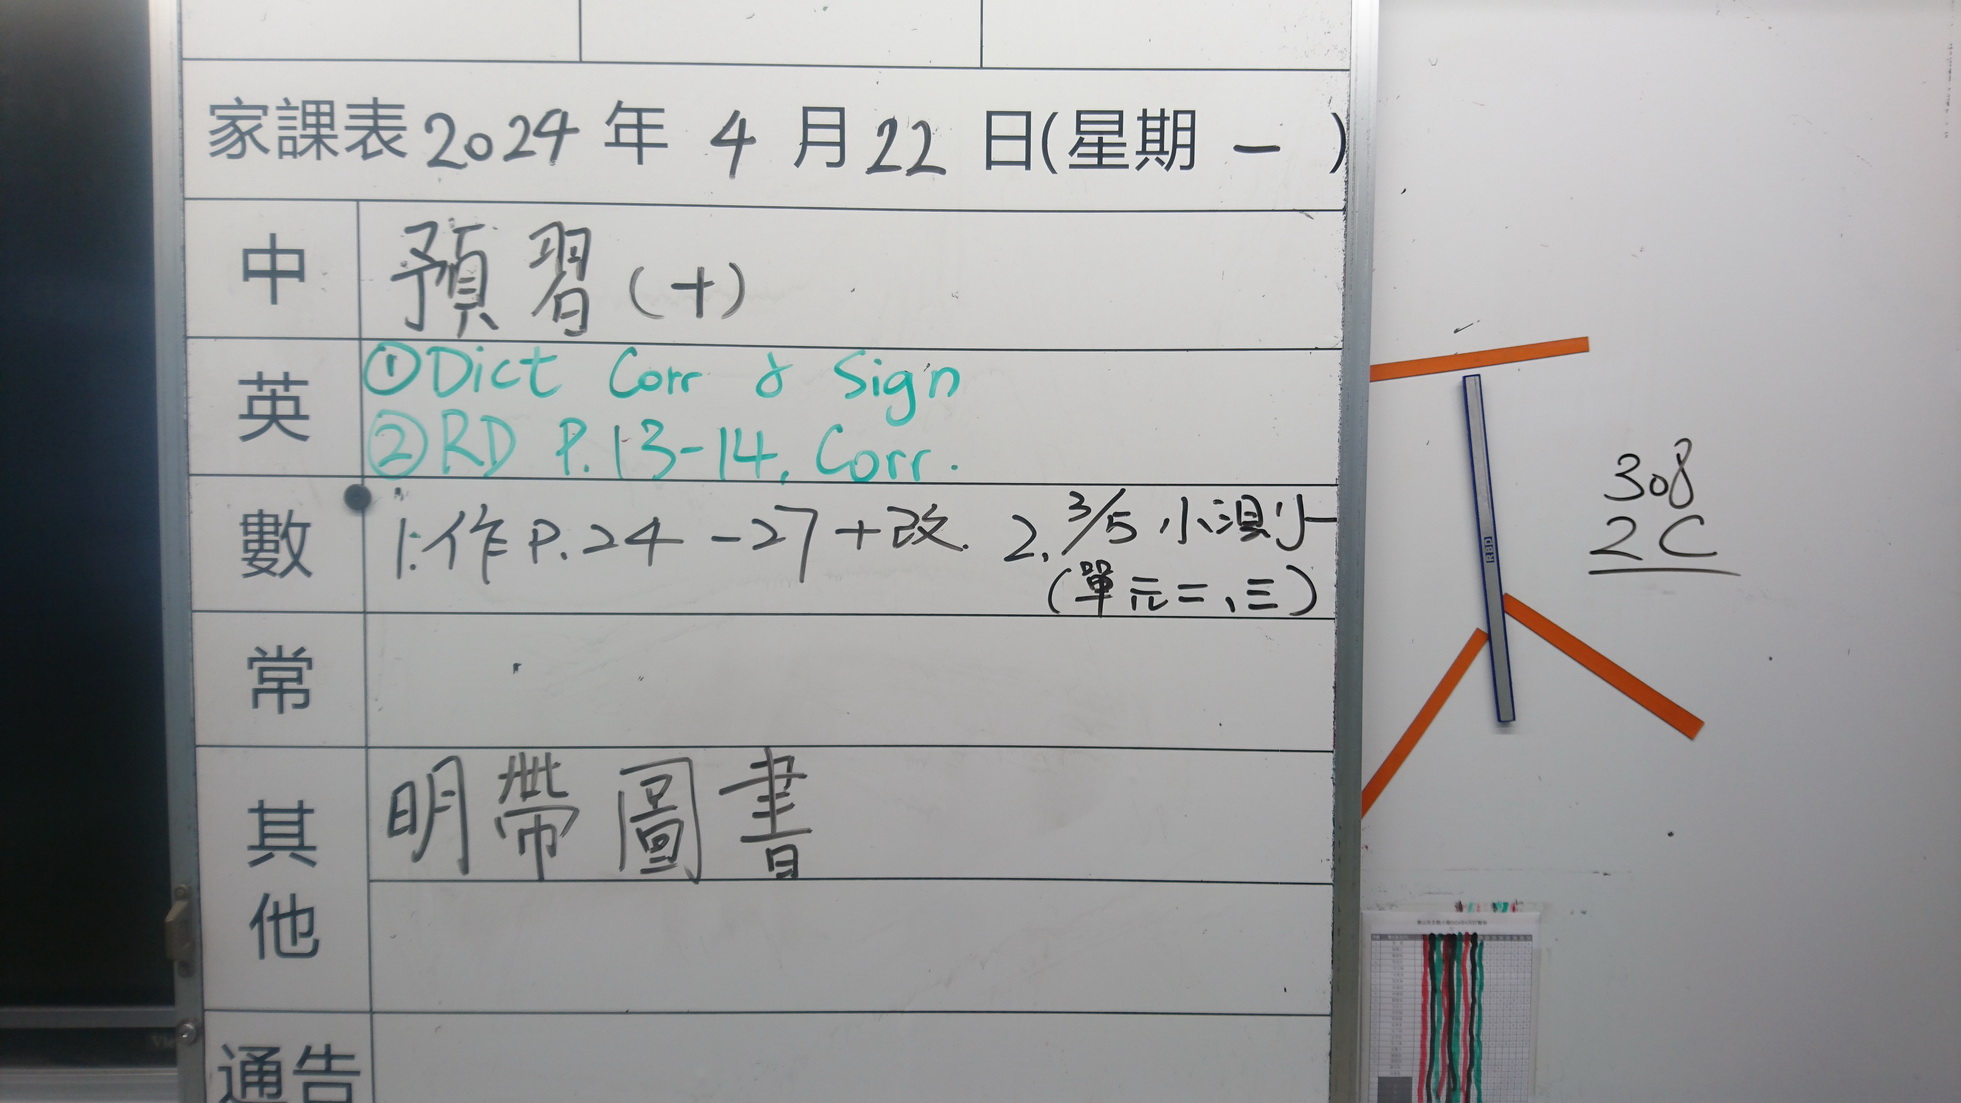 家課表 2024 年 4 月 22 日(星期 一 )
中 預習(十)
英 ①Dict Corr & Sign
②RD P.13-14, Corr.
數 1.作P.24-27+改. 2. 3/5 小測
(單元二、三)
常
其他 明帶圖書
通告
308
2C